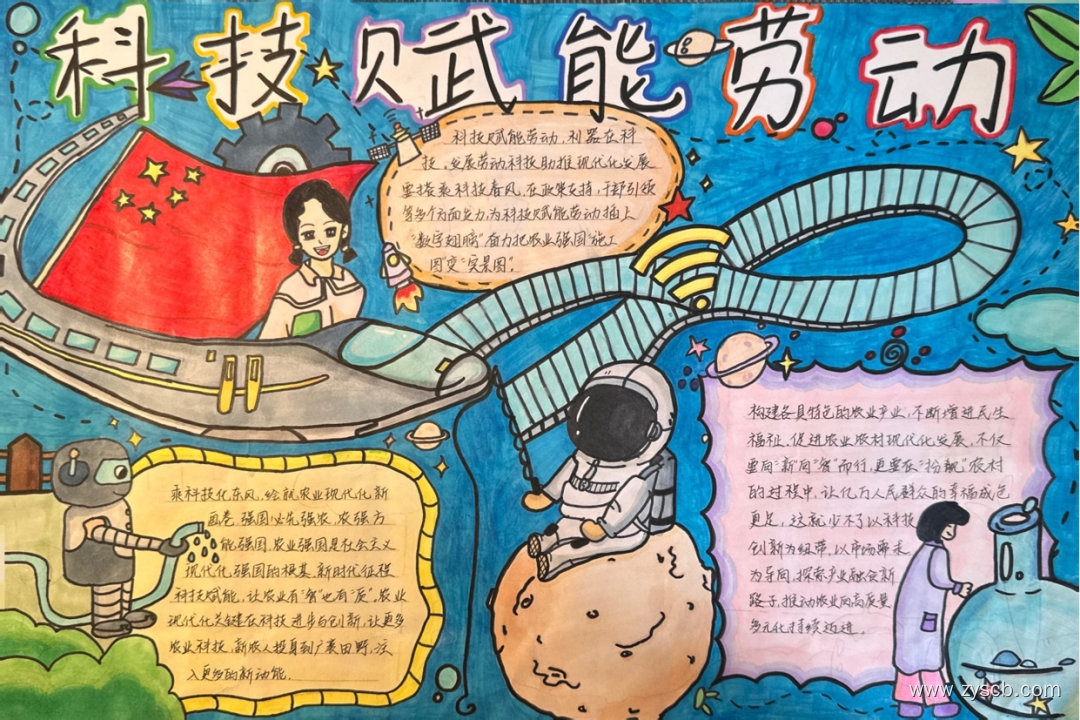 科技赋能劳动
科技赋能劳动,利器在科
技。发展劳动科技助推现代化发展
要搭乘科技春风,在政策支持,干部引领
等多个方面发力,为科技赋能劳动插上
"数字翅膀"奋力把农业强国"施工
图"变"实景图"。
乘科技化东风,绘就农业现代化新
画卷,强国必先强农,农强方
能强国,农业强国是社会主义
现代化强国的根基,新时代征程
科技赋能,让农业有"智"也有"质"。农业
现代化关键在科技进步和创新,让更多
农业科技,新农人投身到广袤田野,注
入更多的新动能.
构建各具特色的农业产业,不断增进民生
福祉,促进农业农村现代化发展,不仅
要向"新"向"智"而行,更要在"扮靓"农村
的过程中,让亿万人民群众的幸福成色
更足,这就少不了以科技
创新为纽带,以市场需求
为导向,探索产业融合新
路子,推动农业向高质量
多元化持续迈进。
www.zyscb.com